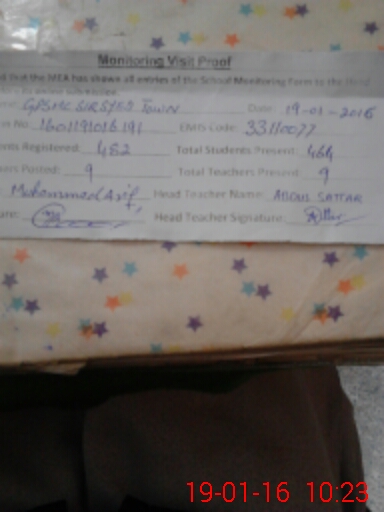 Monitoring Visit Proof
d that the MEA has shown all entries of the School Monitoring Form to the Head
GPS MC SIR SYED TOWN Date: 19-01-2016
No: 1601191016191 EMIS Code: 33110077
nts Registered: 482 Total Students Present: 464
ers Posted: 9 Total Teachers Present: 9
Muhammad Arif Head Teacher Name: ABDUL SATTAR
ure: Head Teacher Signature:
19-01-16 10:23